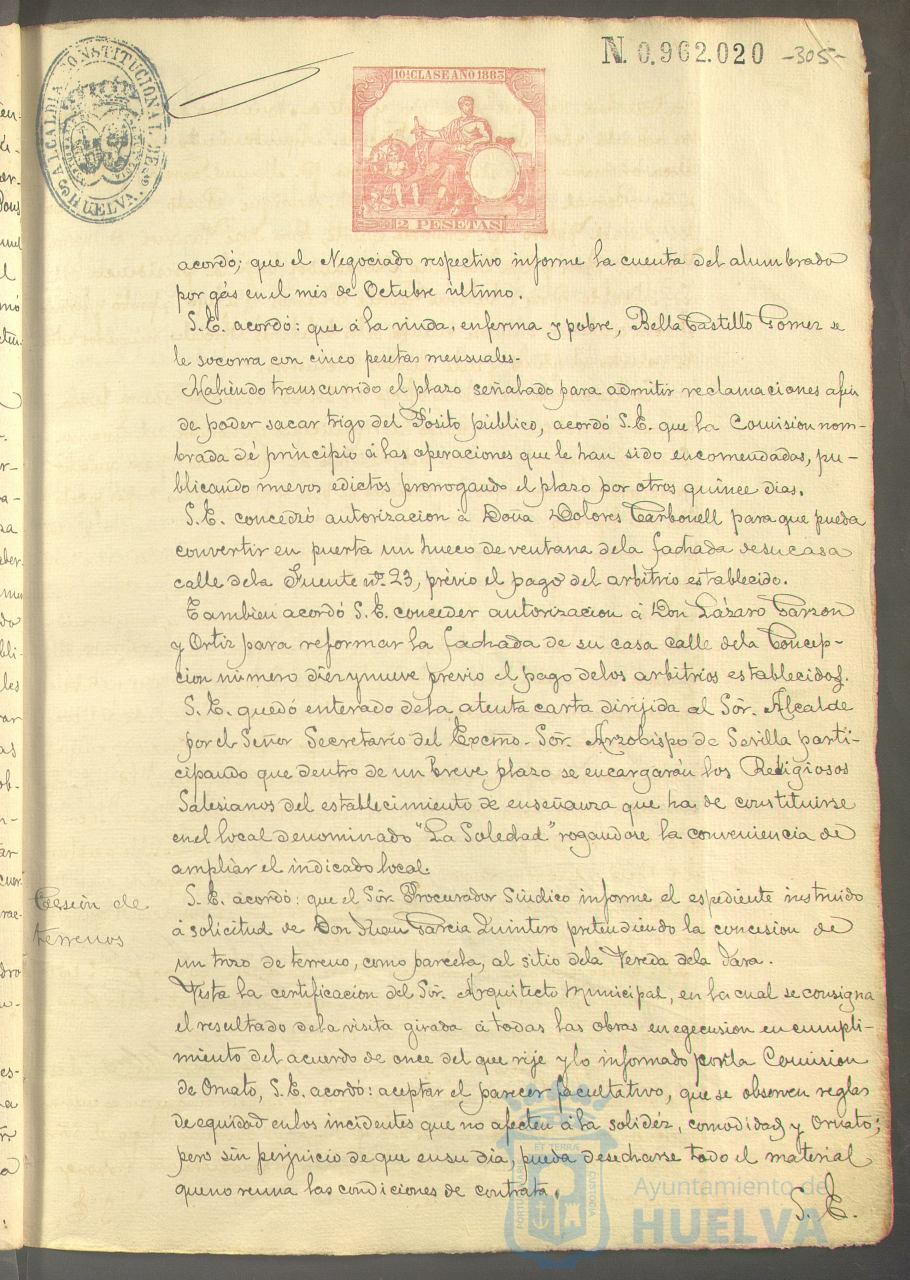 N. 0.962.020 -305-
ALCALDIA CONSTITUCIONAL DE HUELVA.
10ª CLASE AÑO 1883
2 PESETAS
acordó; que el Negociado respectivo informe la cuenta del alumbrado
por gás en el mes de Octubre último.
S.E. acordó: que á la viuda, enferma y pobre, Bella Castillo Gomez se
le socorra con cinco pesetas mensuales.
Habiendo transcurrido el plazo señalado para admitir reclamaciones afin
de poder sacar trigo del Pósito público, acordó S.E. que la Comision nom-
brada dé principio á las operaciones que le han sido encomendadas, pu-
blicando nuevos edictos prorrogando el plazo por otros quince dias.
S.E. concedió autorizacion á Doña Dolores Carbonell para que pueda
convertir en puerta un hueco de ventana dela fachada desu casa
calle dela Fuente nº 23, prévio el pago del arbitrio establecido.
Tambien acordó S.E. conceder autorizacion á Don Lázaro Garzon
y Ortiz para reformar la fachada de su casa calle dela Concep-
cion número diez y nueve previo el pago delos arbitrios establecidos.
S.E. quedó enterado dela atenta carta dirijida al Sór. Alcalde
por el Señor Secretario del Excmo. Sór. Arzobispo de Sevilla parti-
cipando que dentro de un breve plazo se encargarán los Religiosos
Salesianos del establecimiento de enseñanza que ha de constituirse
en el local denominado "La Soledad" rogandose la conveniencia de
ampliar el indicado local.
Cesión de
terrenos
S.E. acordó: que el Sór. Procurador Síndico informe el espediente instruido
á solicitud de Don Juan Garcia Quintero pretendiendo la concesion de
un trozo de terreno, como parcela, al sitio dela Vereda dela Jara.
Vista la certificacion del Sór. Arquitecto Municipal, en la cual se consigna
el resultado dela visita girada á todas las obras en egecusion en cumpli-
miento del acuerdo de once del que rije y lo informado por la Comision
de Ornato, S.E. acordó: aceptar el parecer facultativo, que se observen reglas
de equidad en los incidentes que no afecten á la solidéz, comodidad y Ornato;
pero sin perjuicio de que en su dia, pueda desecharse todo el material
que no reuna las condiciones de contrata.
S. E.
PORTUS MARIS ET TERRAE CUSTODIA
Ayuntamiento de
HUELVA